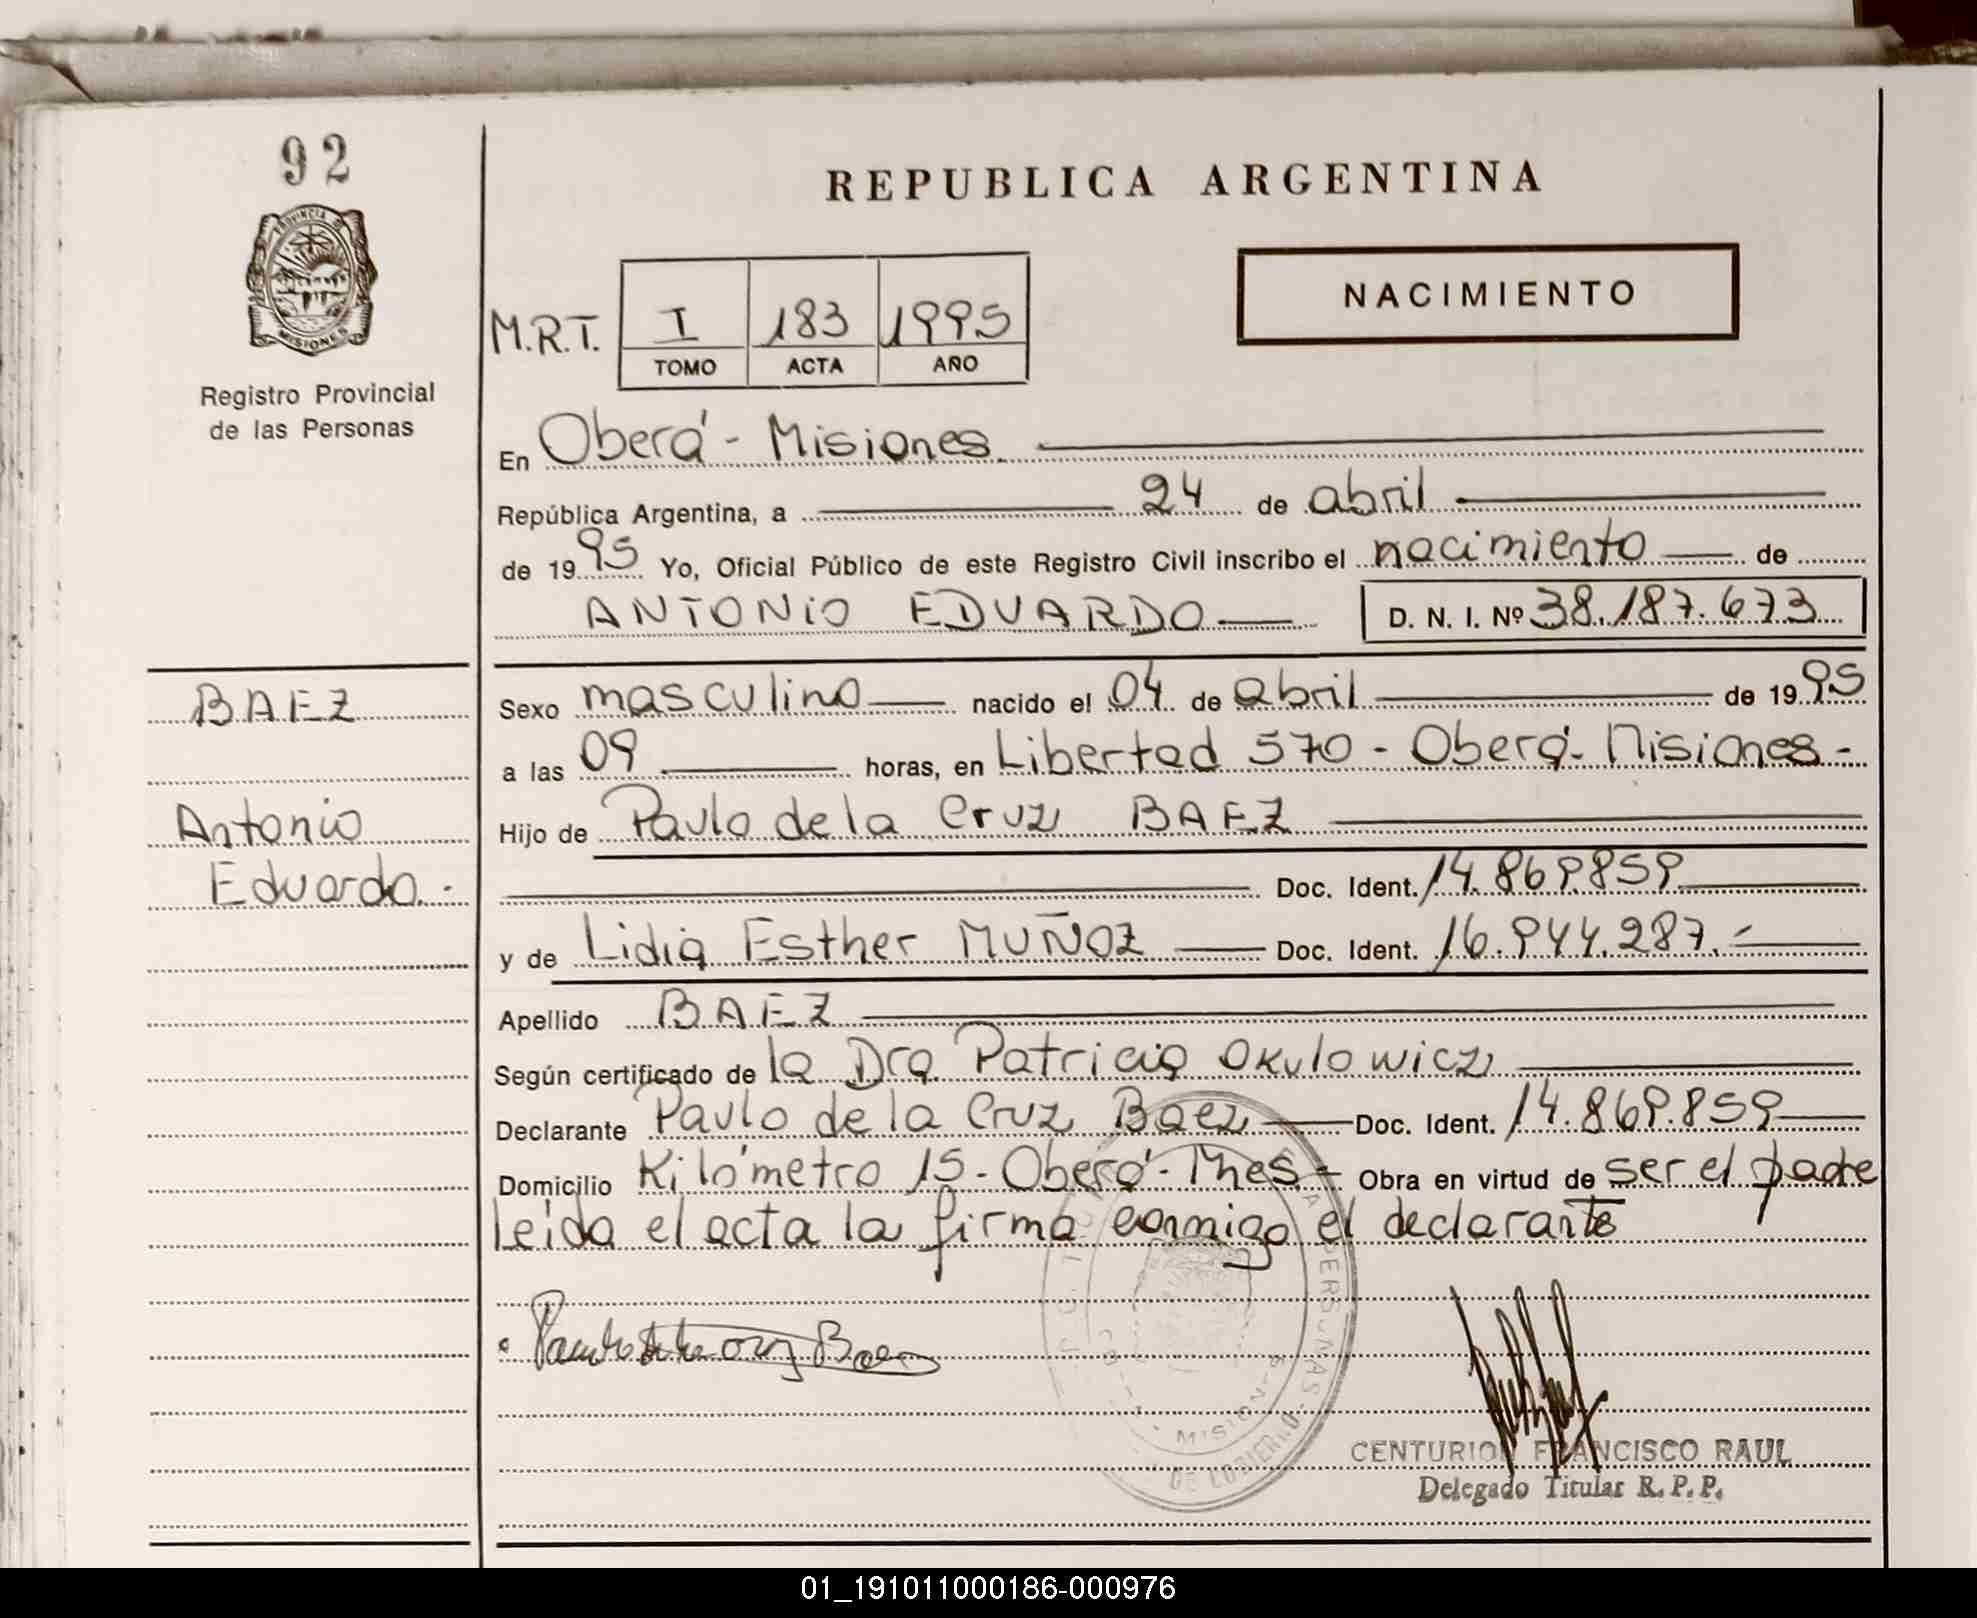 92
PROVINCIA DE
MISIONES
Registro Provincial
de las Personas
REPUBLICA ARGENTINA
NACIMIENTO
M.R.T. I 183 1995
TOMO ACTA AÑO
En Oberá - Misiones.
República Argentina, a 24 de abril
de 1995 Yo, Oficial Público de este Registro Civil inscribo el nacimiento de
ANTONIO EDUARDO D. N. I. Nº 38.187.673
BAEZ
Antonio
Eduardo.-
Sexo masculino nacido el 04 de abril de 1995
a las 09 horas, en Libertad 570 - Oberá - Misiones -
Hijo de Paulo de la Cruz BAEZ
Doc. Ident. 14.869.859
y de Lidia Esther MUÑOZ Doc. Ident. 16.944.287.-
Apellido BAEZ
Según certificado de la Dra Patricia Okulowicz
Declarante Paulo de la Cruz Baez Doc. Ident. 14.869.859
Domicilio Kilómetro 15 - Oberá - Mnes - Obra en virtud de ser el padre
Leída el acta la firma conmigo el declarante
Baez
PERSONAS
MISIONES
DE GOBIERNO
CENTURION FRANCISCO RAUL
Delegado Titular R. P. P.
01_191011000186-000976